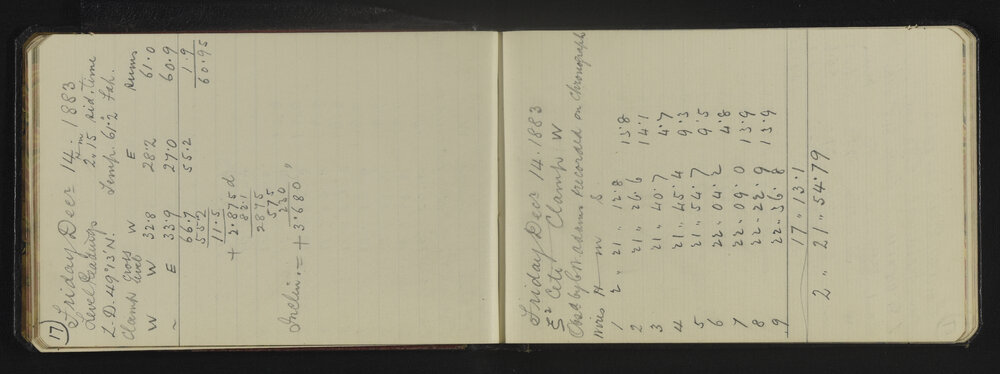 17)
Friday Decr 14. 1883
Level Readings 2h 15m Sid. Time
L.D. 49°13' N. Temp. 61.2 Fah.
Clamp Cross level W E Sums
W W 32.8 28.2 61.0
~ E 33.9 27.0 60.9
66.7 55.2 1.9
55.2 60.95
+ 11.5
+ 2.875d
82.1
2875
575
230
Inclin. = + 3.680"
Friday Decr 14. 1883
ξ² Ceti Clamp W
Obsd by recorded on Chronograph
Wires H m S
1 2 " 21 " 12.8 13.8
2 21 " 26.6 14.1
3 21 " 40.7 4.7
4 21 " 45.4 9.3
5 21 " 54.7 9.5
6 22 " 04.2 4.8
7 22 " 09.0 13.9
8 22 " 22.9 13.9
9 22 " 36.8
17 " 13.1
2 " 21 " 54.79